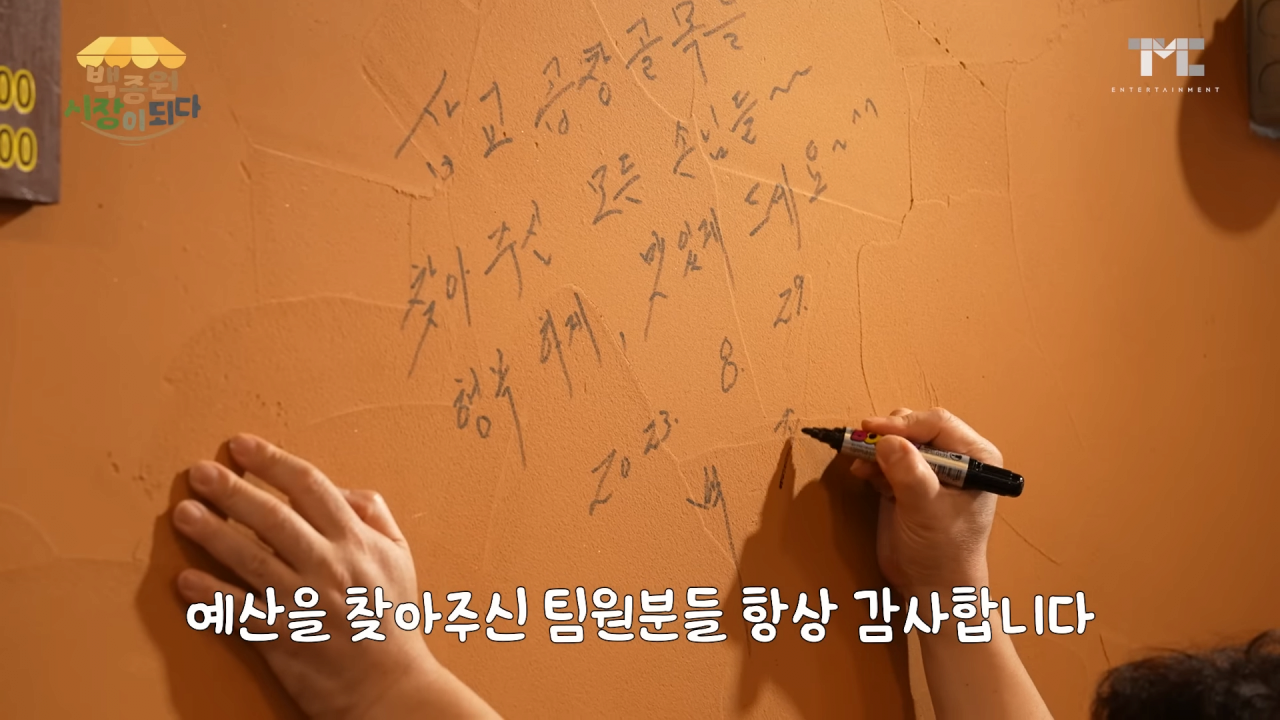 백종원
시장이 되다
TMC
ENTERTAINMENT
00
00
삽교 곱창골목을
찾아주신 모든 손님들~
행복하게, 맛있게 드세요~^^
2023. 8. 29.
백 종
예산을 찾아주신 팀원분들 항상 감사합니다